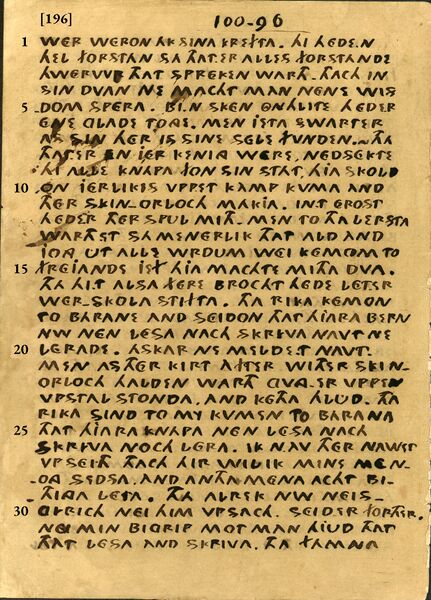 [196]
100-96
1 WER WERON HJA SINA KREFTA. HI HEDE.N
HEL FORSTAN SA THAT.ER ALLES FORSTANDE
HWERVR THAT SPREKEN WARTH. THACH IN
SIN DVAN NE MACHT MAN NENE WIS
5 DOM SPERA. BI.N SKEN ONHLITE HEDER
ENE GLADE TONGE. MEN JETA SWARTER
AS SIN HER IS SINE SELE FUNDEN. THA
THAT.ER EN JER KENING WERE, NEDSEKTE
HI ALLE KNAPA FON SIN STAT, HJA SKOLD
10 ON JERLIKES VPPET KAMP KVMA AND
THER SKIN-ORLOCH MAKJA. IN.T EROST
HEDER THER SPUL MITH. MEN TO THA LERSTA
WARTH.T SA MENERLIK THAT ALD AND
JONG UT ALLE WRDUM WEI KEMON TO
15 FREJANDE JEF HJA MACHTE MITHA DVA.
THA HI.T ALSA FERE BROCHT HEDE LETER
WER-SKOLA STIFTA. THA RIKA KEMON
TO BARANE AND SEIDON THAT HJARA BERN
NW NEN LESA NACH SKRIVA NAVT NE
20 LERADE. ASKAR NE MELDE.T NAVT.
MEN AS THER KIRT AFTER WITHER SKIN-
ORLOCH HALDEN WARTH GVNG.ER VPPEN
VPSTAL STONDA, AND KETHA HLUD. THA
RIKA SIND TO MY KVMEN TO BARANA
25 THAT HJARA KNAPA NEN LESA NACH
SKRIVA NOCH LERA. IK N.AV THER NAWET
VPSEITH THACH HIR WIL IK MINE MEN-
NG SEDSA. AND ANTHA MENA ACHT BI-
THINGA LETA. THA ALREK NW NEIS-
30 GIRICH NEI HIM VPSACH. SEIDER FORTHER.
NEI MIN BIGRIP MOT MAN HJUD THAT
THAT LESA AND SKRIVA. THA FAMNA